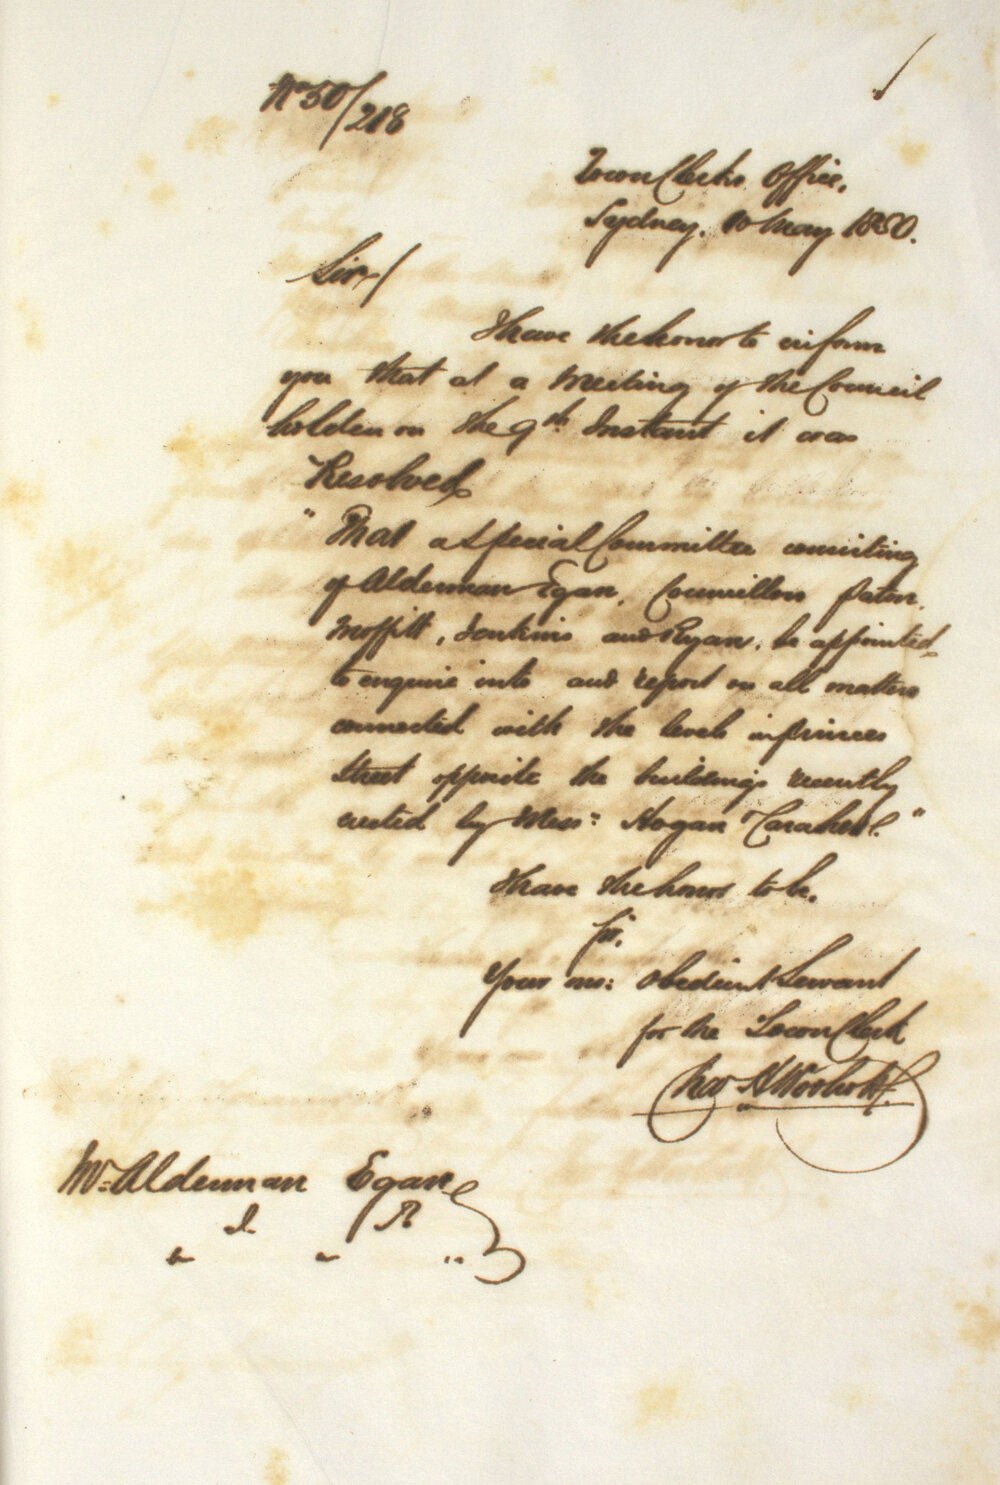 No 50/218
Town Clerks Office,
Sydney, 10 May 1850.
Sir/
I have the honor to inform
you that at a Meeting of the Council
holden on the 9th Instant it was
Resolved
" That a Special Committee consisting
of Alderman Egan, Councillors Paton,
Moffitt, Jenkins and Ryan, be appointed
to enquire into and report on all matters
connected with the levels in Princes
Street opposite the buildings recently
erected by Mess: Hogan &
I have the honor to be,
Sir,
Your mo: obedient Servant
for the Town Clerk
Mr Alderman Egan